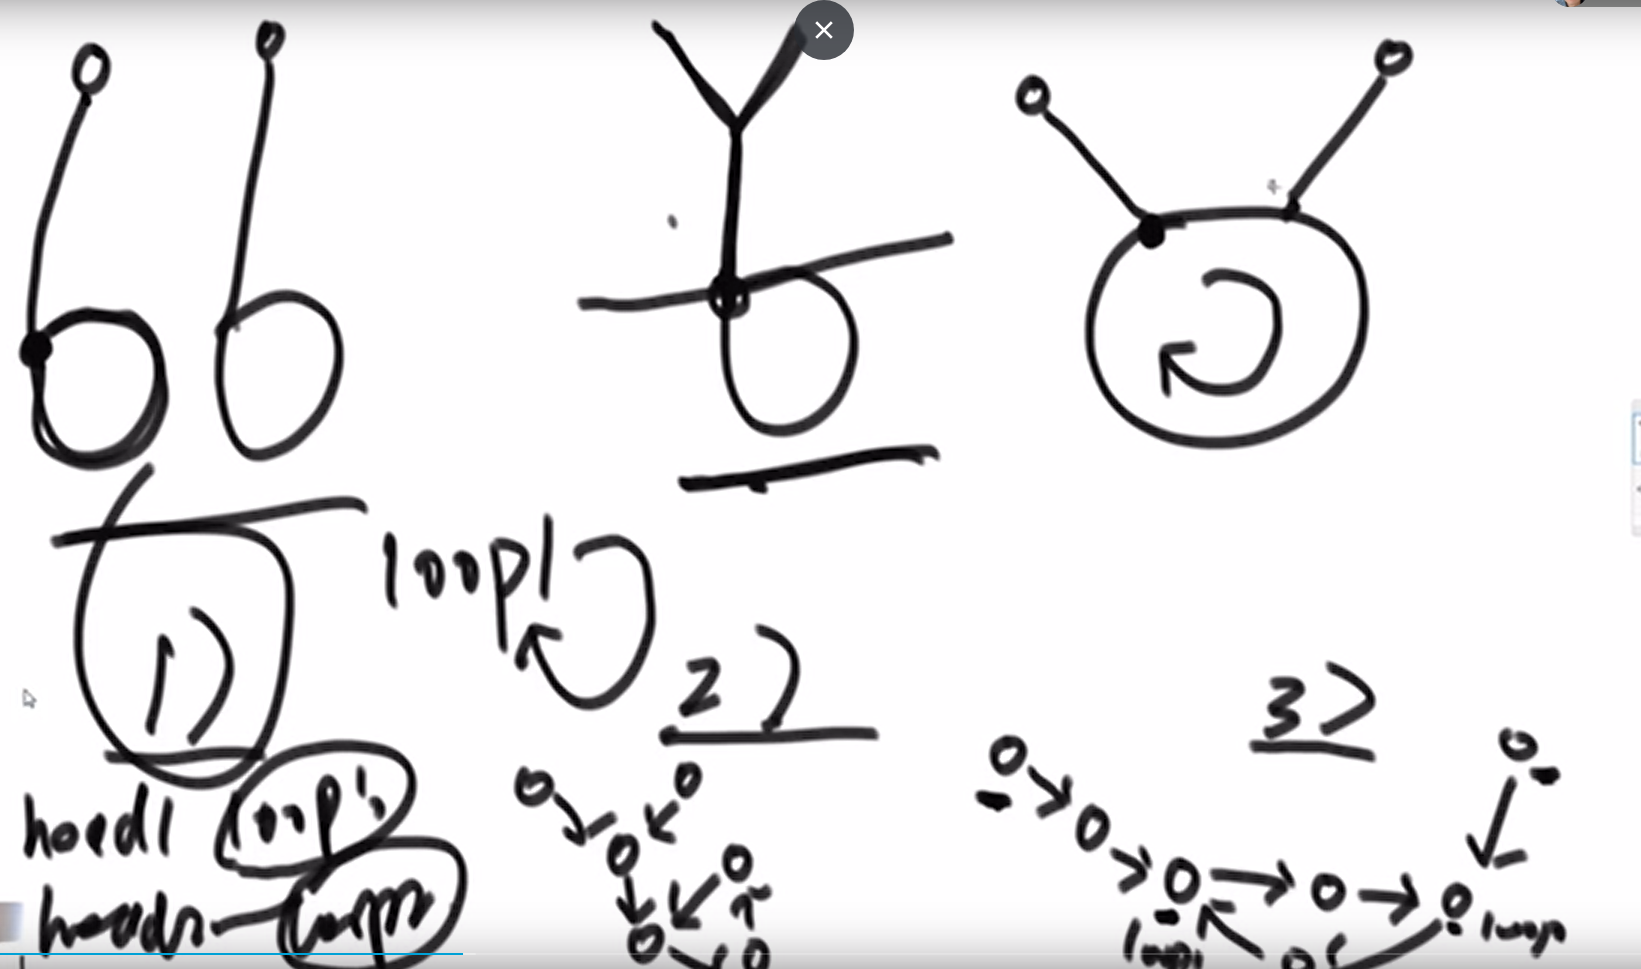 loop1
1)
2)
3)
head1 loop1
head2 loop2
loop1
loop